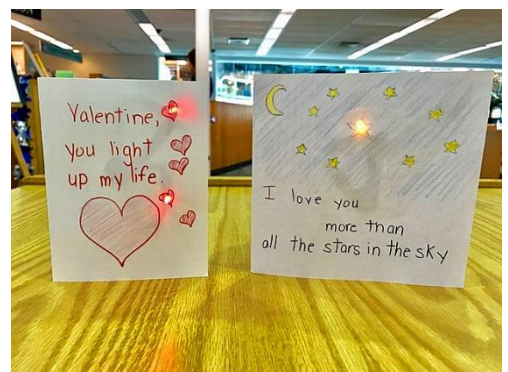 Valentine,
you light
up my life.
I love you
more than
all the stars in the sky